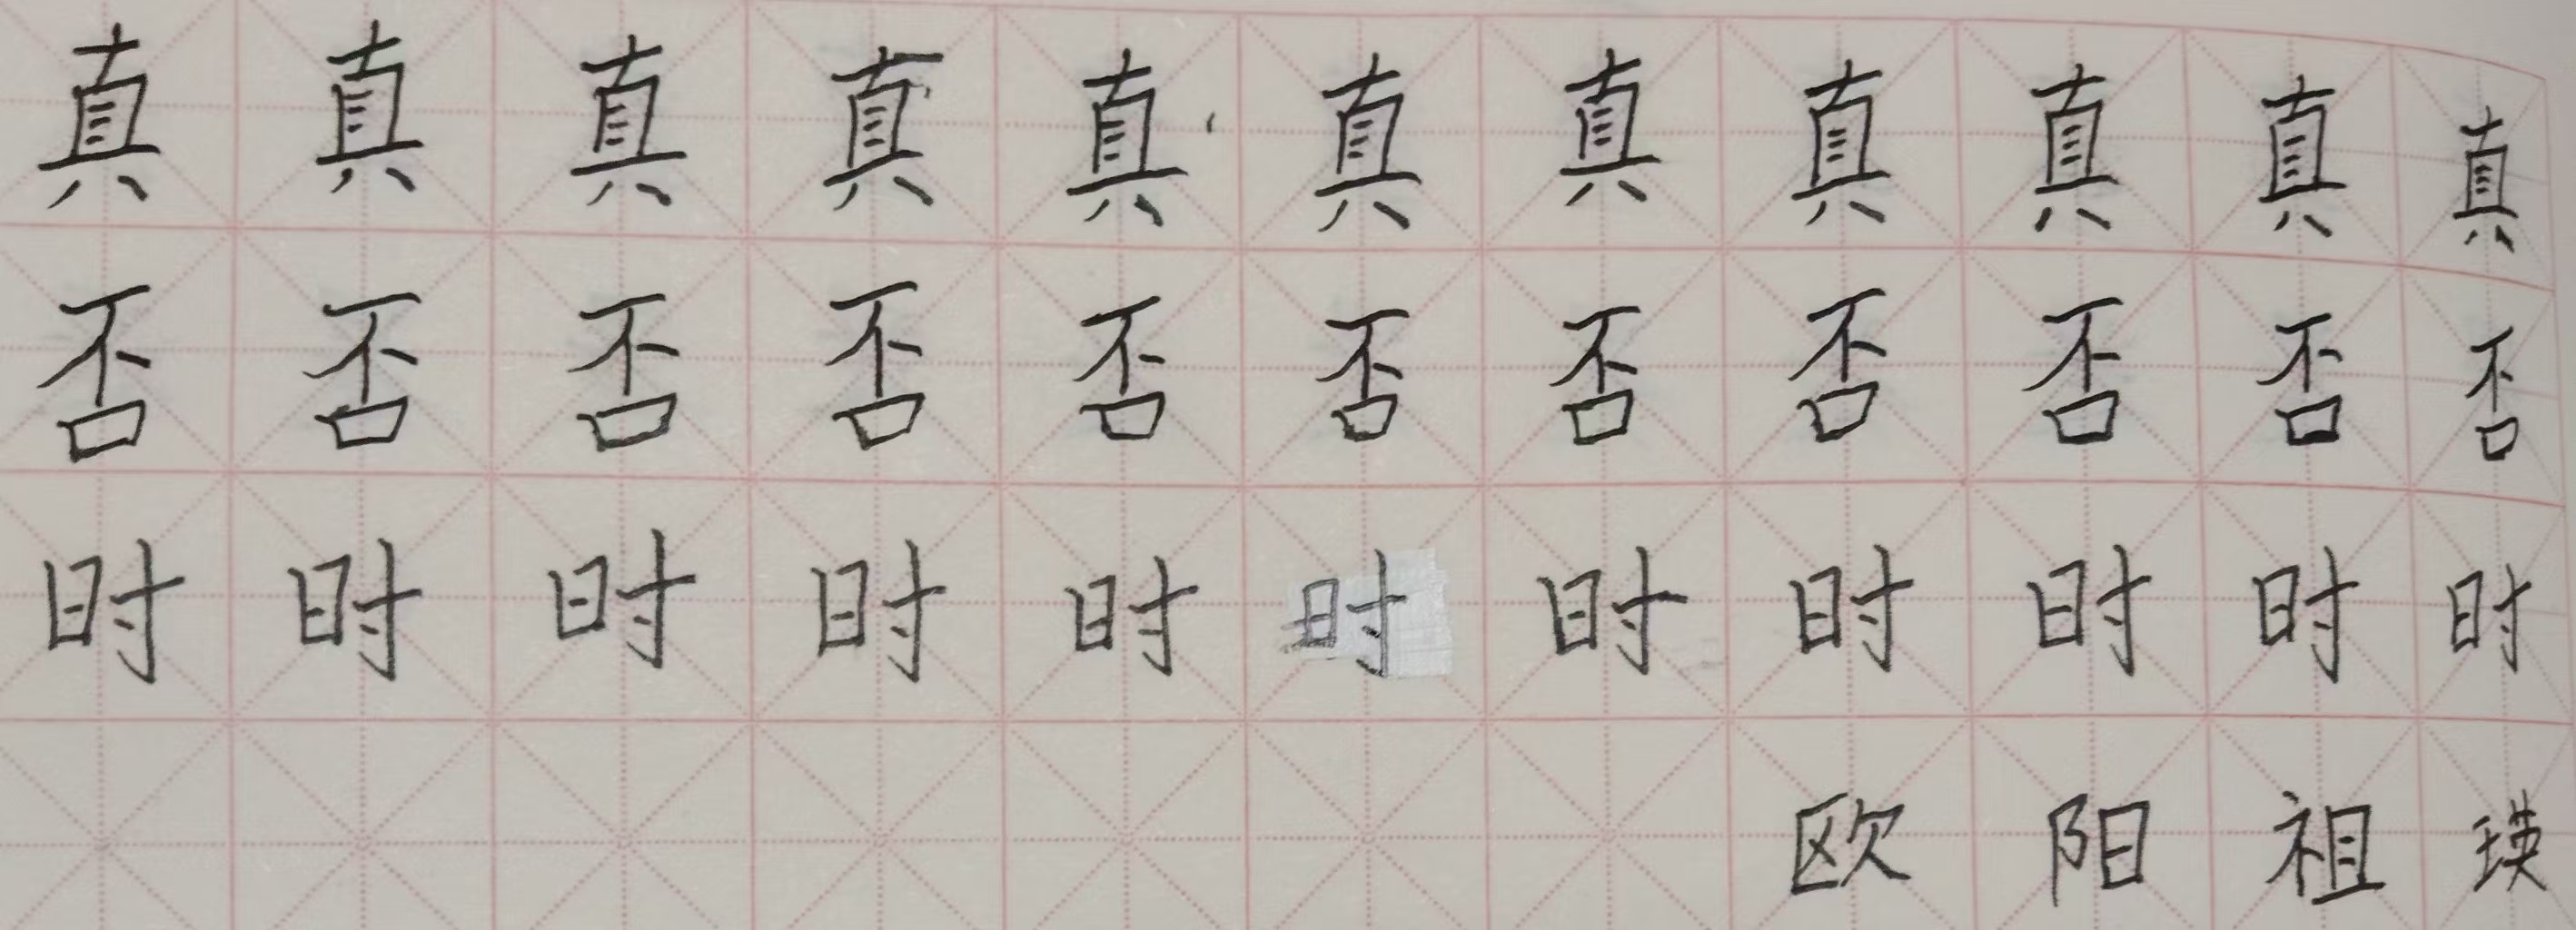 真真真真真真真真真真真
否否否否否否否否否否否
时时时时时时时时时时时
欧阳祖瑛